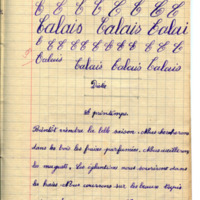 C C C C C C C C
Calais Calais Calai
C C C C C C C C C C
Calais Calais Calais Calais
Date
Le printemps.
Bientôt viendra la belle saison. Nous chercherons
dans les bois les fraises parfumées. Nous cueillerons
les muguets. Les églantines nous souriront dans
les haies. Nous courrons sur les beaux tapis